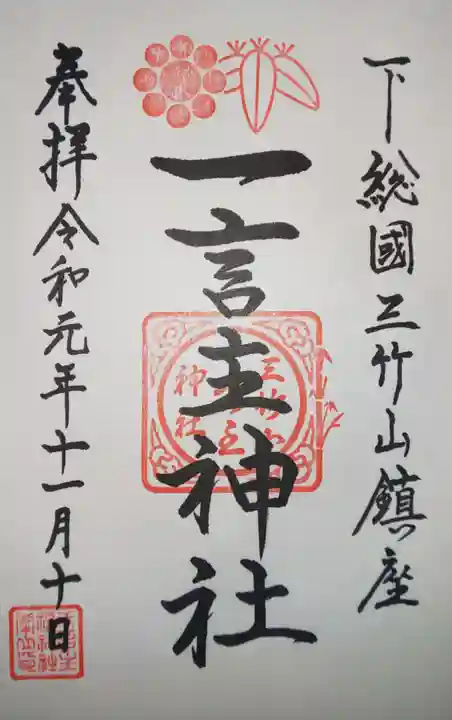 下総國三竹山鎮座
一言主神社
奉拝令和元年十一月十日
三竹山
神社